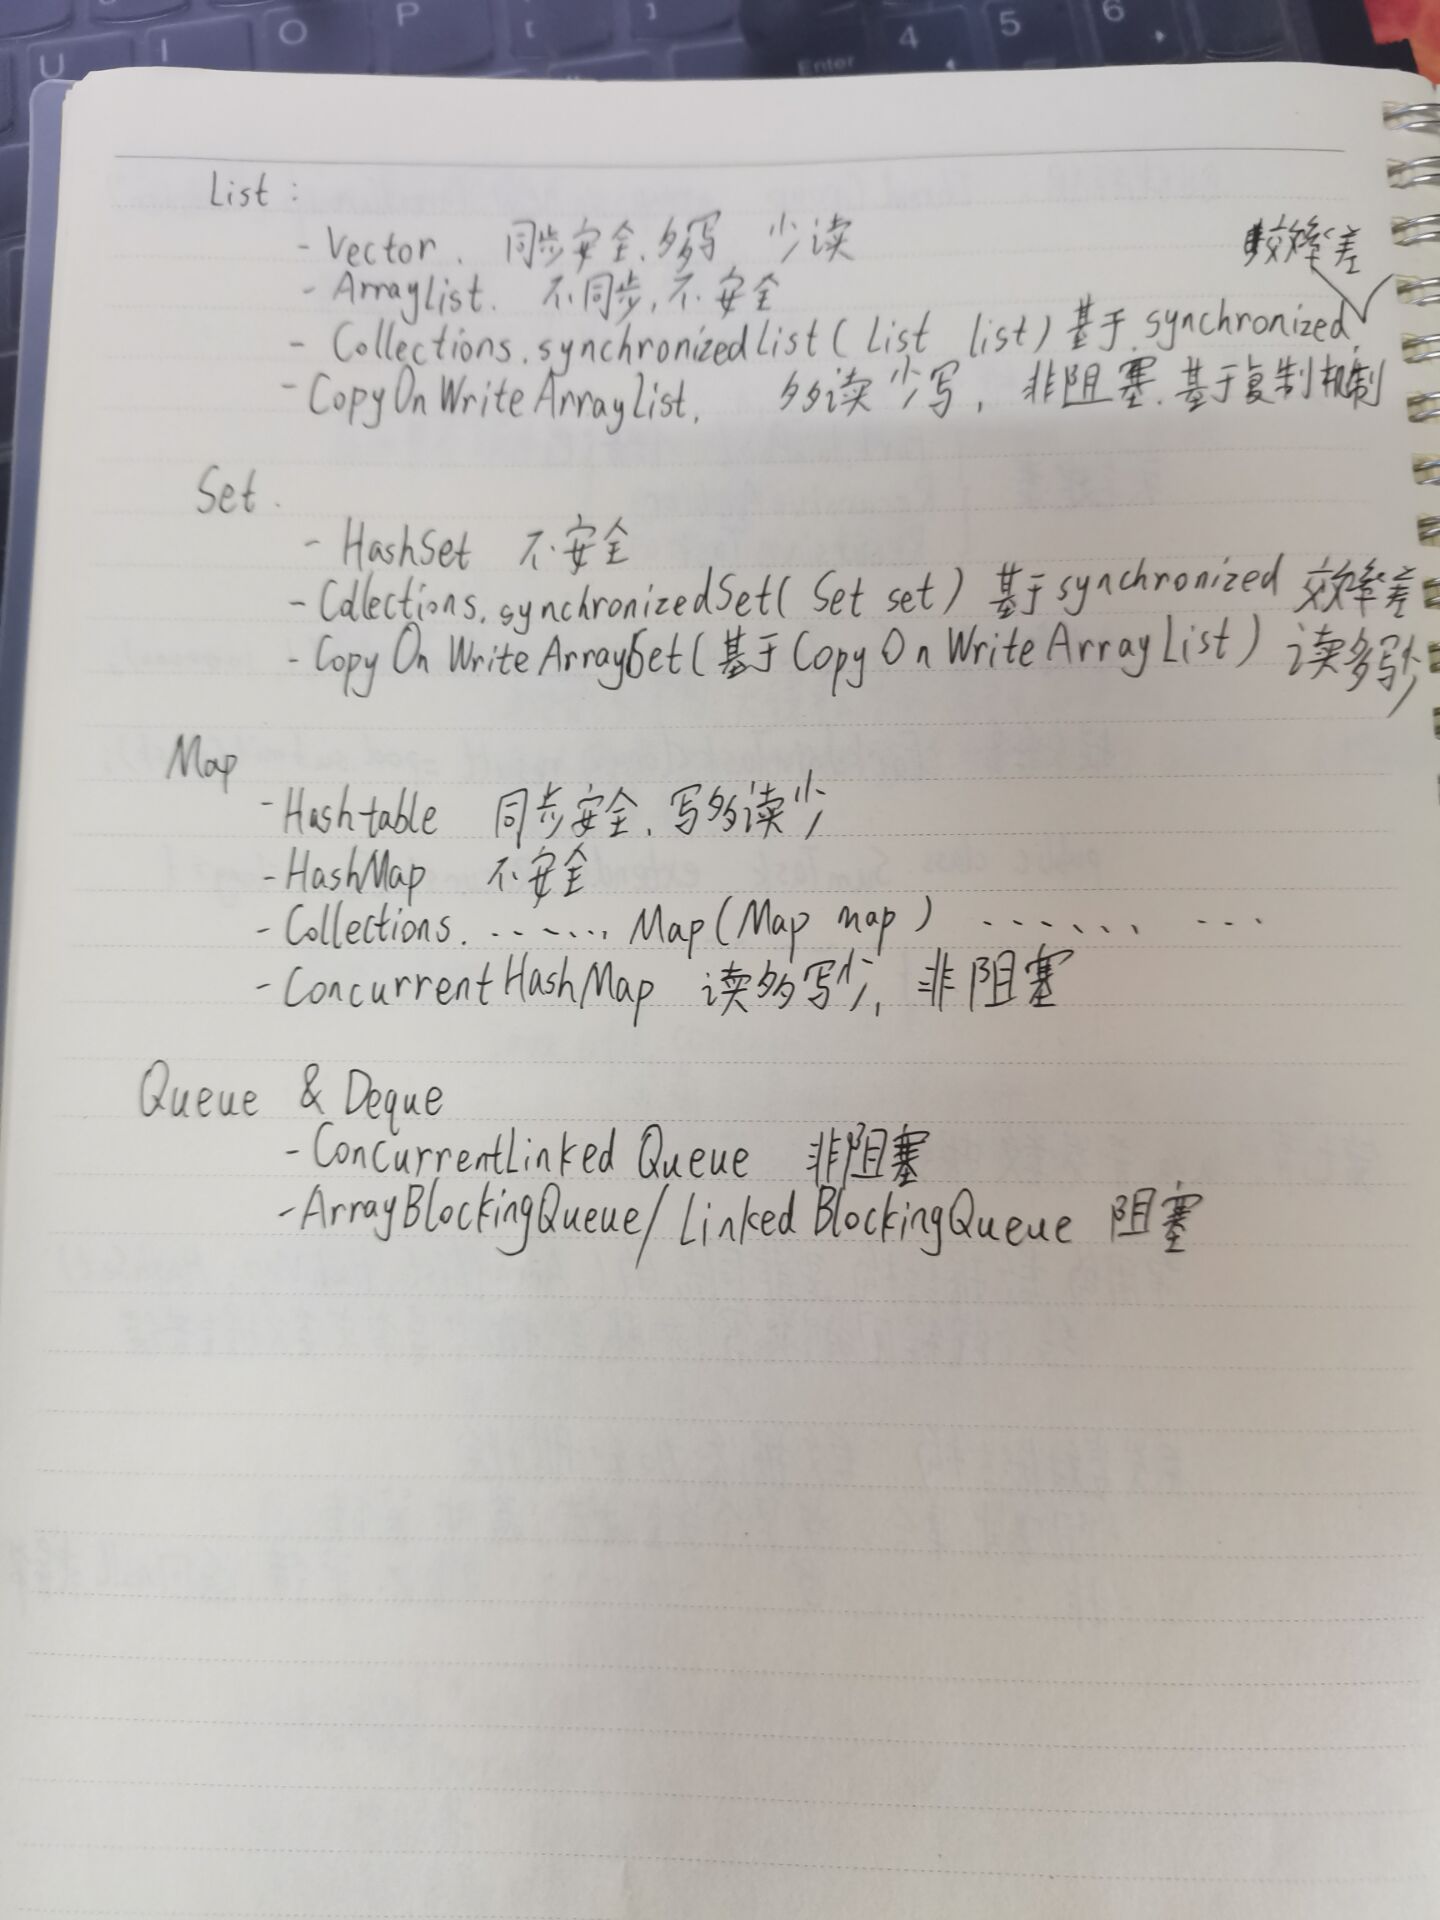 List :
- Vector. 同步安全, 多写 少读
效率差
- Arraylist. 不同步, 不安全
- Collections.synchronizedList(List list) 基于 synchronized,
- CopyOnWriteArrayList, 多读少写, 非阻塞, 基于复制机制
Set.
- HashSet 不安全
- Collections.synchronizedSet(Set set) 基于synchronized 效率差
- CopyOnWriteArraySet(基于CopyOnWriteArrayList) 读多写少
Map
- Hashtable 同步安全, 写多读少
- HashMap 不安全
- Collections. ....... Map(Map map) ....... ...
- ConcurrentHashMap 读多写少, 非阻塞
Queue & Deque
- ConcurrentLinkedQueue 非阻塞
- ArrayBlockingQueue/LinkedBlockingQueue 阻塞
U I O P [ ] Enter 4 5 6